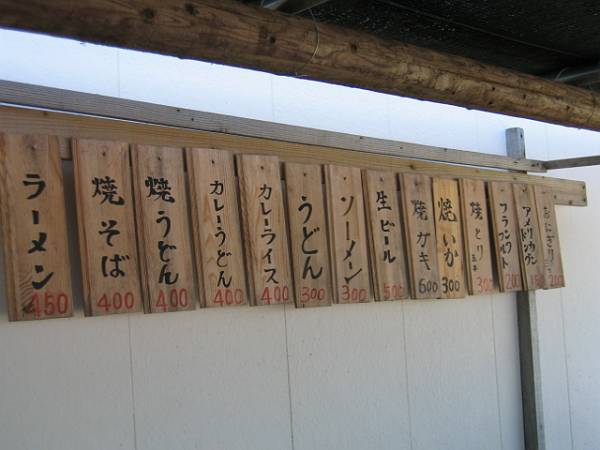 ラーメン 450
焼そば 400
焼うどん 400
カレーうどん 400
カレーライス 400
うどん 300
ソーメン 300
生ビール 500
焼ガキ 600
焼いか 300
焼とり 300
フランクフルト 200
アメリカンドッグ 150
おにぎり 200